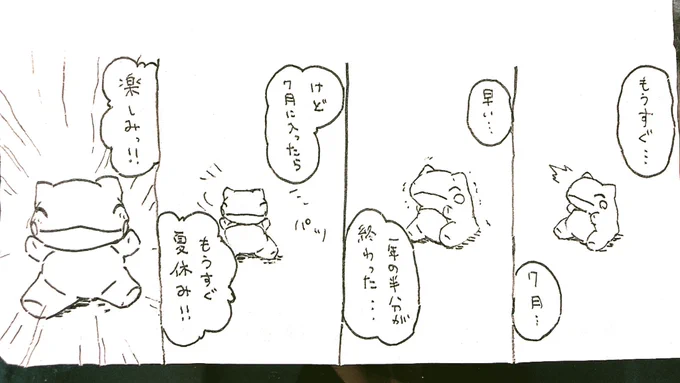 もうすぐ…
7月…
早い…
一年の半分が
終わった…
けど
7月に入ったら
パッ
もうすぐ
夏休み!!
楽しみっ!!